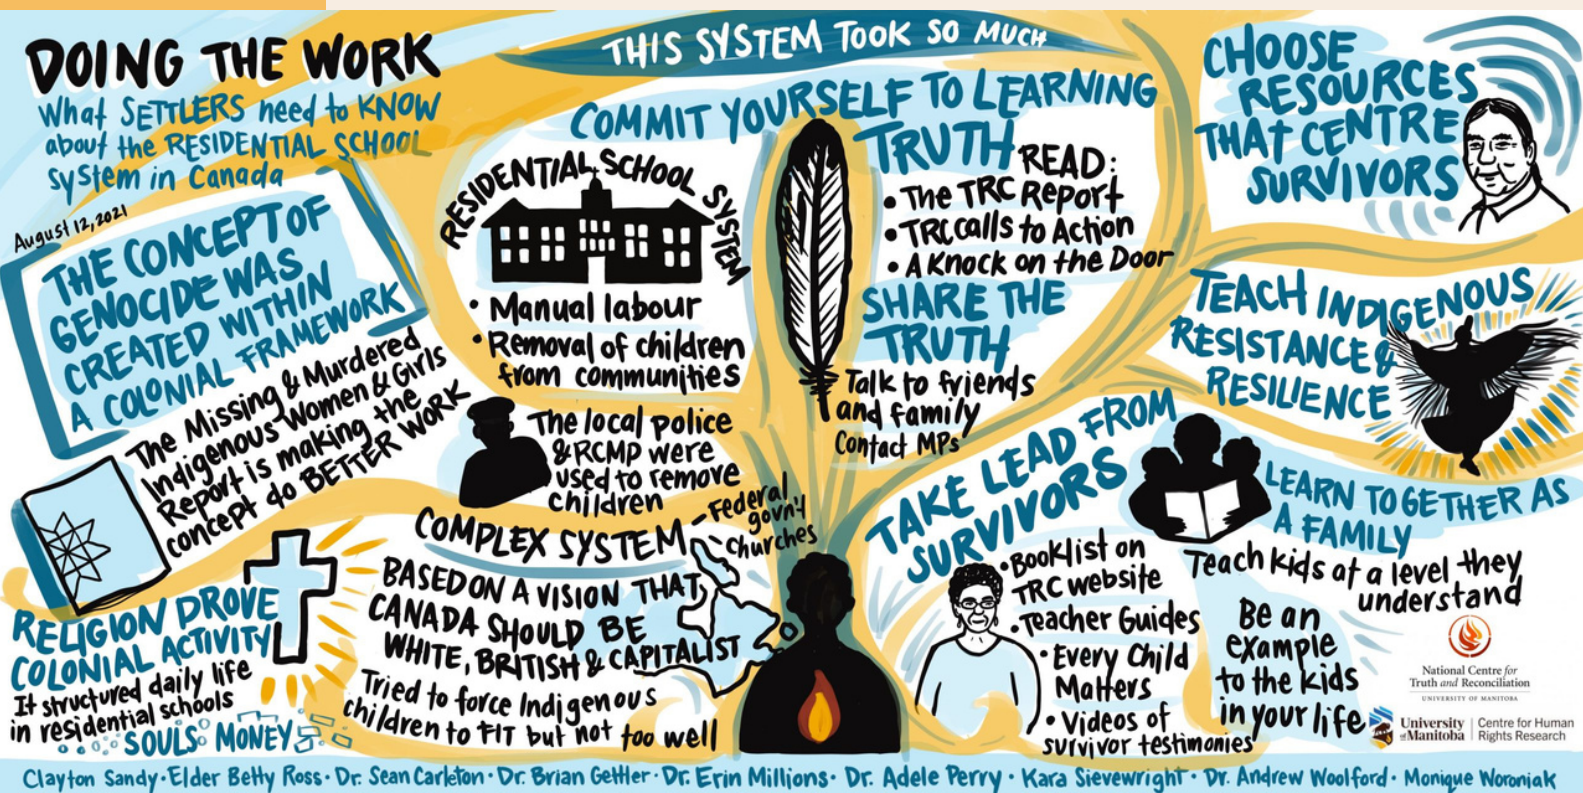 DOING THE WORK
What SETTLERS need to KNOW
about the RESIDENTIAL SCHOOL
system in Canada
August 12, 2021
THE CONCEPT OF
GENOCIDE WAS
CREATED WITHIN
A COLONIAL FRAMEWORK
The Missing & Murdered
Indigenous Women & Girls
Report is making the
concept do BETTER WORK
RELIGION DROVE
COLONIAL ACTIVITY
It structured daily life
in residential schools
SOULS MONEY
THIS SYSTEM TOOK SO MUCH
COMMIT YOURSELF TO LEARNING
TRUTH
RESIDENTIAL SCHOOL SYSTEM
• Manual labour
• Removal of children
from communities
The local police
& RCMP were
used to remove
children
COMPLEX SYSTEM
- Federal
govn't
- Churches
BASED ON A VISION THAT
CANADA SHOULD BE
WHITE, BRITISH & CAPITALIST
Tried to force Indigenous
children to FIT but not too well
READ:
• The TRC Report
• TRC calls to Action
• A Knock on the Door
SHARE THE
TRUTH
Talk to friends
and family
Contact MPs
TAKE LEAD FROM
SURVIVORS
• Booklist on
TRC website
• Teacher Guides
• Every Child
Matters
• Videos of
survivor testimonies
CHOOSE
RESOURCES
THAT CENTRE
SURVIVORS
TEACH INDIGENOUS
RESISTANCE &
RESILIENCE
LEARN TOGETHER AS
A FAMILY
Teach kids at a level they
understand
Be an
example
to the kids
in your life
National Centre for
Truth and Reconciliation
UNIVERSITY OF MANITOBA
University
of Manitoba
Centre for Human
Rights Research
Clayton Sandy · Elder Betty Ross · Dr. Sean Carleton · Dr. Brian Gettler · Dr. Erin Millions · Dr. Adele Perry · Kara Sievewright · Dr. Andrew Woolford · Monique Woroniak